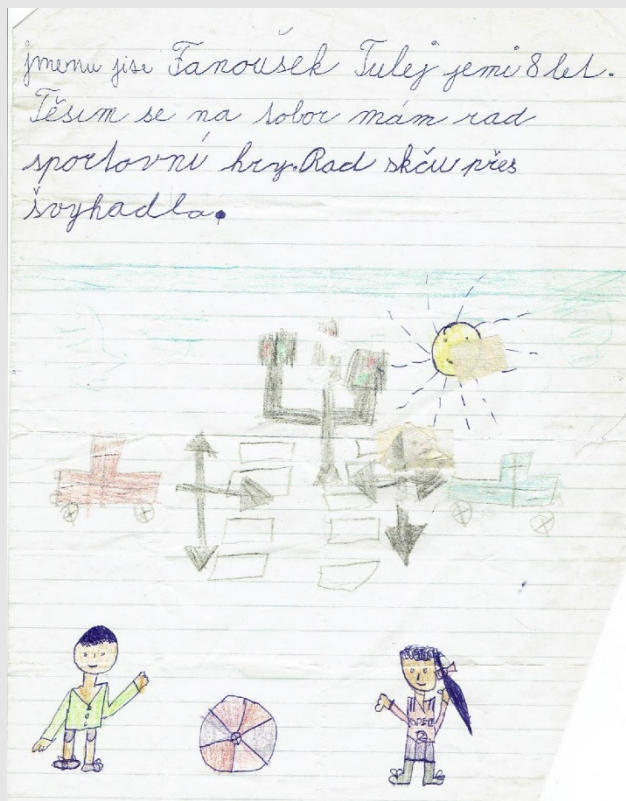 jmenu jise Fanoušek Tulej jemi 8 let.
Těsim se na tobor mám rad
sportovní hry. Rad skču přes
švyhadla.